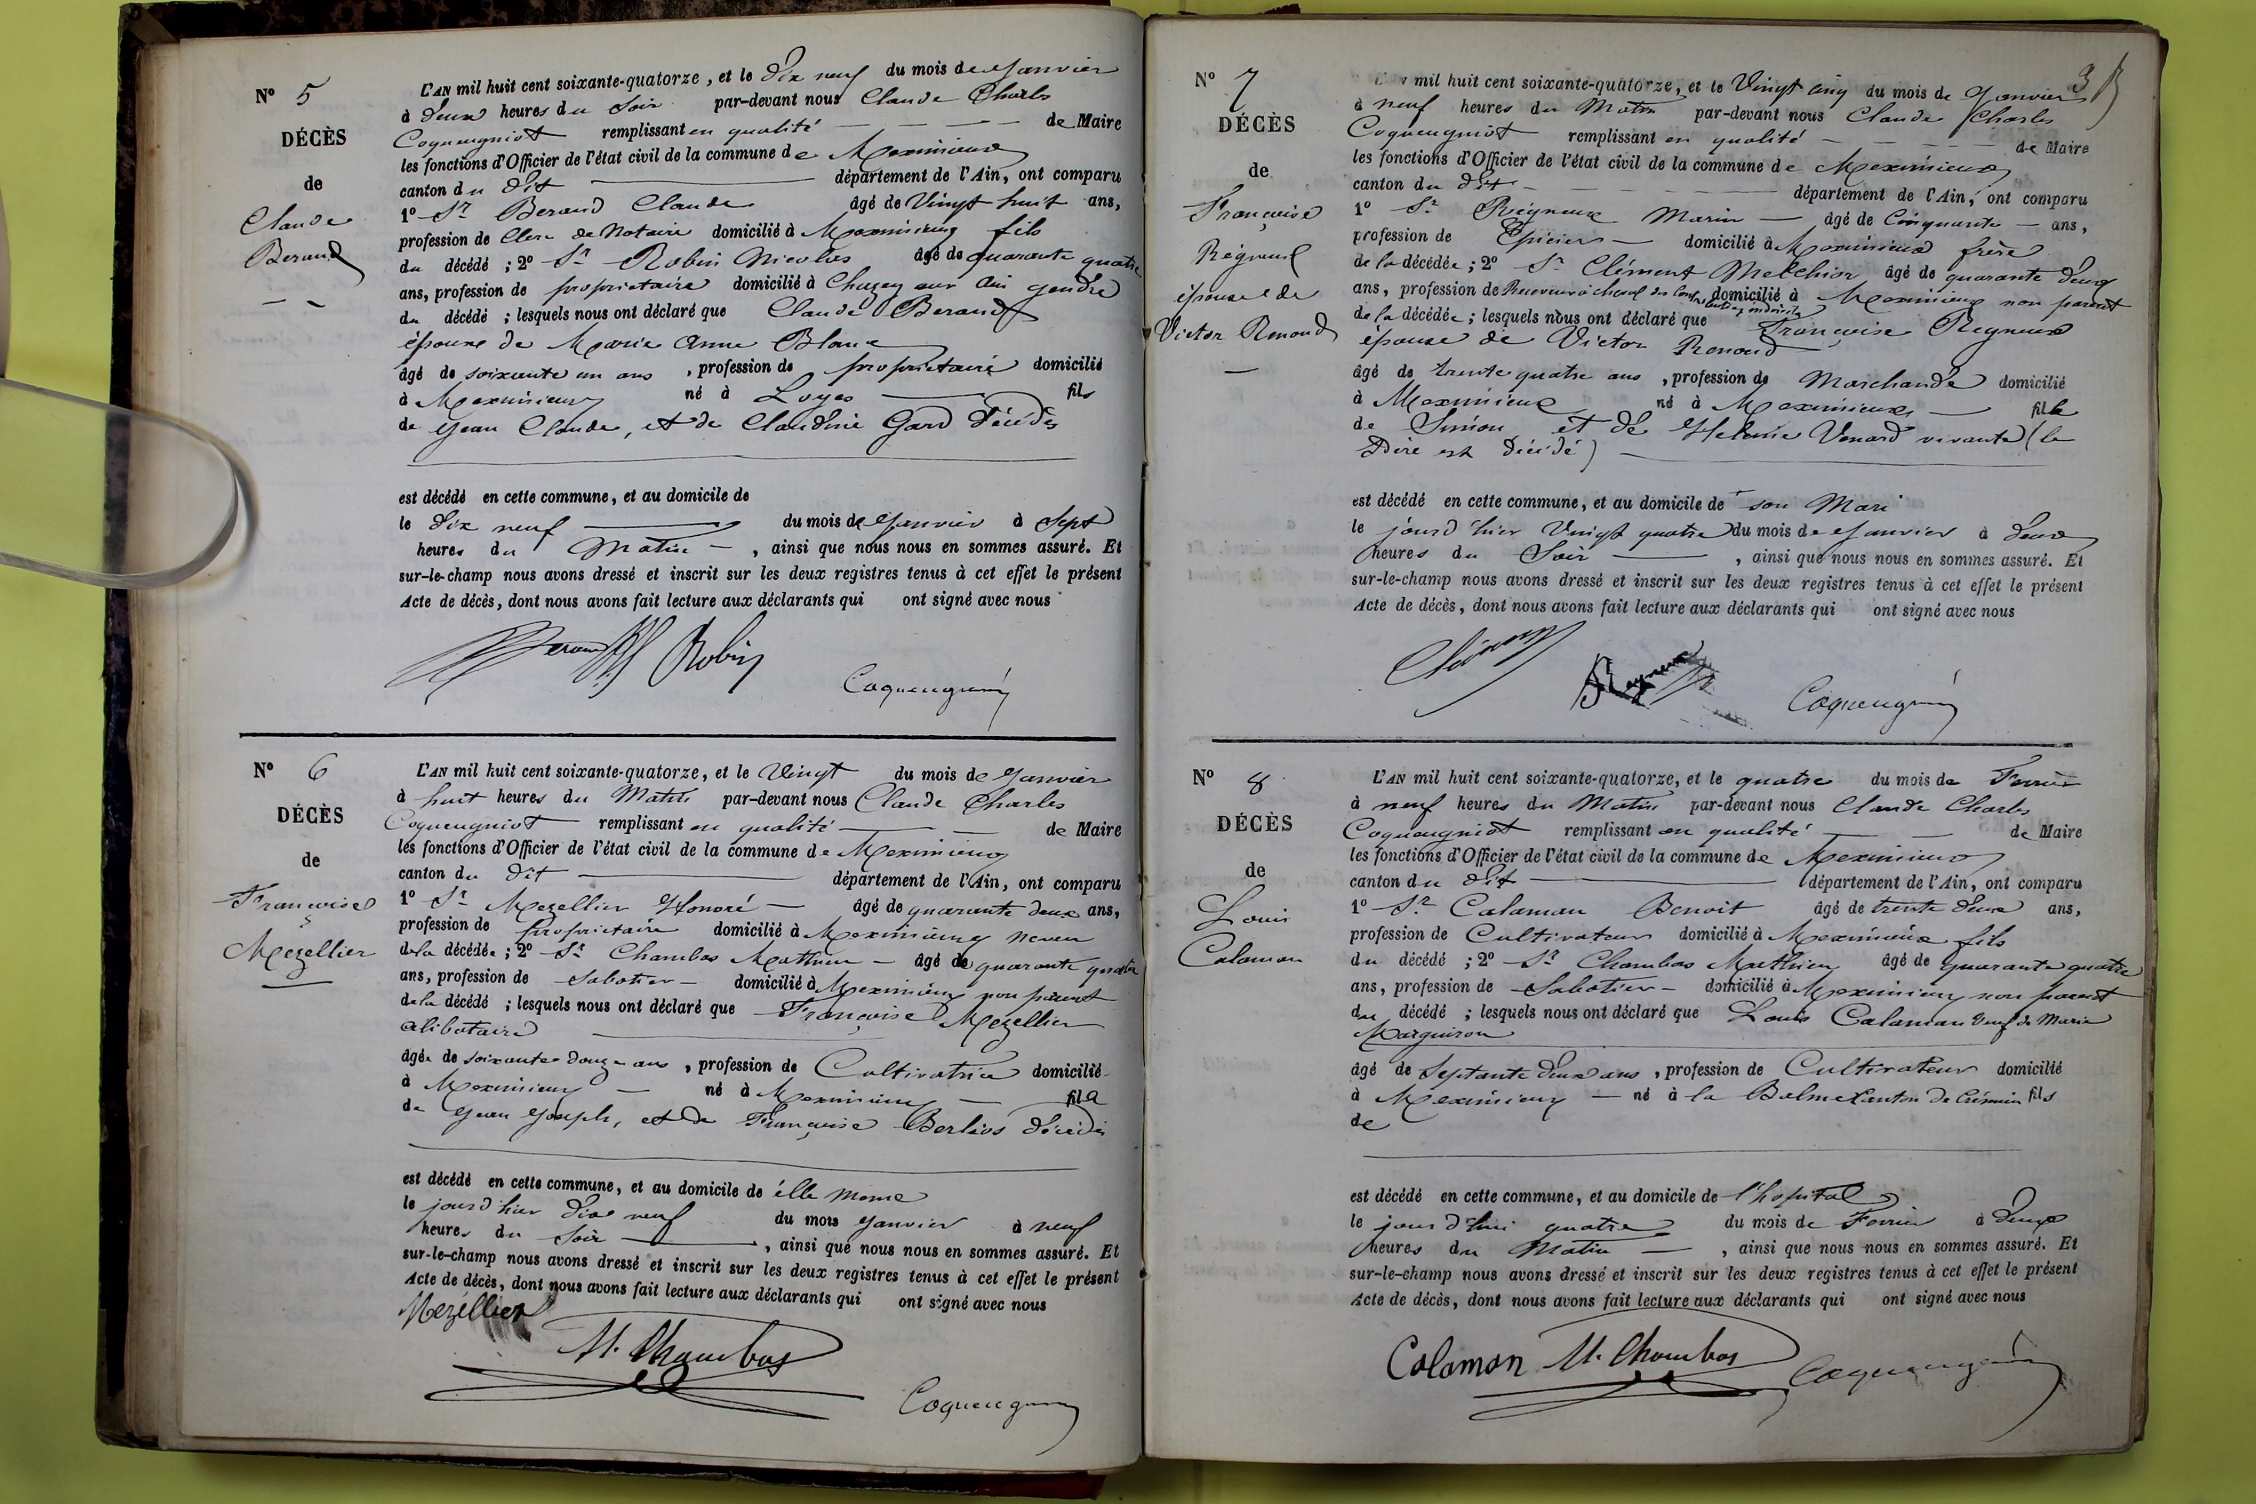 N° 5
DÉCÈS
de
Claude
Beraud
L'AN mil huit cent soixante-quatorze, et le Dix neuf du mois de Janvier
à deux heures du Soir par-devant nous Claude Charles
Coqueugniot remplissant en qualité de Maire
les fonctions d'Officier de l'état civil de la commune de Meximieux
canton du dit département de l'Ain, ont comparu
1° Sr Beraud Claude âgé de Vingt huit ans,
profession de Clerc de Notaire domicilié à Meximieux fils
du décédé ; 2° Sr Robin Nicolas âgé de quarante quatre
ans, profession de propriétaire domicilié à Chazey sur Ain gendre
du décédé ; lesquels nous ont déclaré que Claude Beraud
époux de Marie Anne Blanc
âgé de soixante un ans , profession de propriétaire domicilié
à Meximieux né à Loyes fils
de Jean Claude, et de Claudine Gard décédés
est décédé en cette commune, et au domicile de
le dix neuf du mois de Janvier à Sept
heures du Matin , ainsi que nous nous en sommes assuré. Et
sur-le-champ nous avons dressé et inscrit sur les deux registres tenus à cet effet le présent
Acte de décès, dont nous avons fait lecture aux déclarants qui ont signé avec nous
Beraud Robin
Coqueugniot
N° 6
DÉCÈS
de
Françoise
Mezellier
L'AN mil huit cent soixante-quatorze, et le Vingt du mois de Janvier
à huit heures du Matin par-devant nous Claude Charles
Coqueugniot remplissant en qualité de Maire
les fonctions d'Officier de l'état civil de la commune de Meximieux
canton du dit département de l'Ain, ont comparu
1° Sr Mezellier Honoré âgé de quarante deux ans,
profession de propriétaire domicilié à Meximieux neveu
de la décédée ; 2° Sr Chambas Mathieu âgé de quarante quatre
ans, profession de Sabotier domicilié à Meximieux non parent
de la décédé ; lesquels nous ont déclaré que Françoise Mezellier
célibataire
âgée de soixante douze ans , profession de Cultivatrice domicilié
à Meximieux né à Meximieux fille
de Jean Joseph, et de Françoise Berlios décédés
est décédé en cette commune, et au domicile de elle meme
le jourd'hier dix neuf du mois Janvier à neuf
heures du Soir , ainsi que nous nous en sommes assuré. Et
sur-le-champ nous avons dressé et inscrit sur les deux registres tenus à cet effet le présent
Acte de décès, dont nous avons fait lecture aux déclarants qui ont signé avec nous
Mezellier
M. Chambas
Coqueugniot
3
N° 7
DÉCÈS
de
Françoise
Régneux
épouse de
Victor Renoud
mil huit cent soixante-quatorze, et le Vingt cinq du mois de Janvier
à neuf heures du Matin par-devant nous Claude Charles
Coqueugniot remplissant en qualité de Maire
les fonctions d'Officier de l'état civil de la commune de Meximieux
canton du dit département de l'Ain, ont comparu
1° Sr Régneux Marin âgé de Cinquante ans,
profession de Epicier domicilié à Meximieux frère
de la décédée ; 2° Sr Clément Melchior âgé de quarante deux
ans, profession de Receveur à cheval des Contributions indirectes domicilié à Meximieux non parent
de la décédée ; lesquels nous ont déclaré que Françoise Regneux
épouse de Victor Renoud
âgé de trente quatre ans , profession de Marchande domicilié
à Meximieux né à Meximieux fille
de Simon et de Helenie Venard vivante (le
Père est décédé)
est décédé en cette commune, et au domicile de son Mari
le jourd'hier Vingt quatre du mois de Janvier à deux
heures du Soir , ainsi que nous nous en sommes assuré. Et
sur-le-champ nous avons dressé et inscrit sur les deux registres tenus à cet effet le présent
Acte de décès, dont nous avons fait lecture aux déclarants qui ont signé avec nous
Clément
Coqueugniot
N° 8
DÉCÈS
de
Louis
Calaman
L'AN mil huit cent soixante-quatorze, et le quatre du mois de Fevrier
à neuf heures du Matin par-devant nous Claude Charles
Coqueugniot remplissant en qualité de Maire
les fonctions d'Officier de l'état civil de la commune de Meximieux
canton du dit département de l'Ain, ont comparu
1° Sr Calaman Benoit âgé de trente deux ans,
profession de Cultivateur domicilié à Meximieux fils
du décédé ; 2° Sr Chambas Mathieu âgé de quarante quatre
ans, profession de Sabotier domicilié à Meximieux non parent
du décédé ; lesquels nous ont déclaré que Louis Calaman Veuf de Marie
Marguiron
âgé de Septante deux ans , profession de Cultivateur domicilié
à Meximieux né à la Balme Canton de Crémieu fils
de
est décédé en cette commune, et au domicile de l'hopital
le jour d'hui quatre du mois de Fevrier à deux
heures du Matin , ainsi que nous nous en sommes assuré. Et
sur-le-champ nous avons dressé et inscrit sur les deux registres tenus à cet effet le présent
Acte de décès, dont nous avons fait lecture aux déclarants qui ont signé avec nous
Calaman M. Chambas Coqueugniot